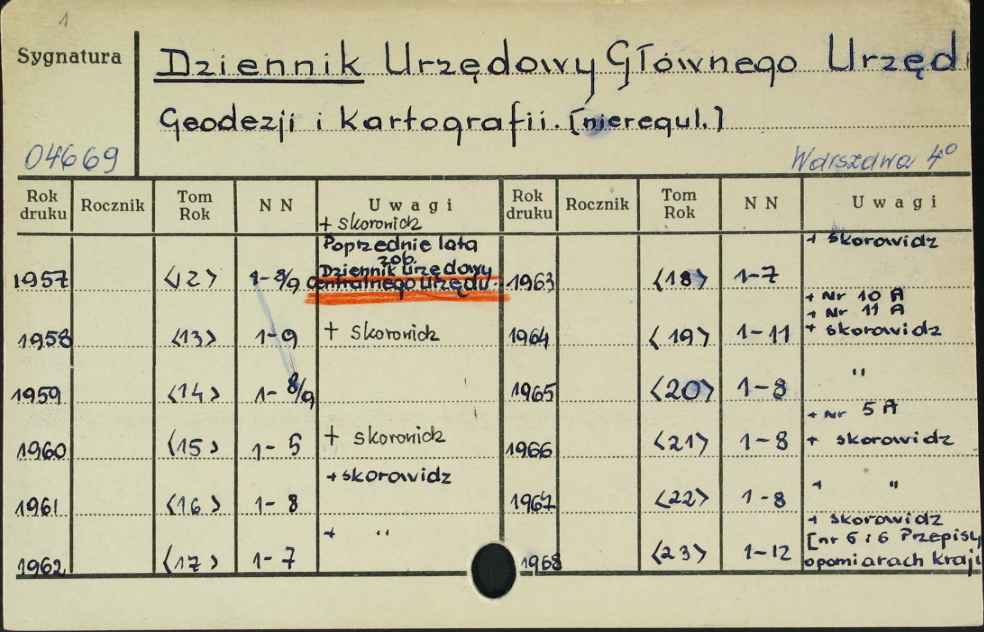 1
Sygnatura
Dziennik Urzędowy Głównego Urzęd
Geodezji i Kartografii. [nieregul.]
04669
Warszawa 4°
Rok druku Rocznik Tom Rok NN Uwagi Rok druku Rocznik Tom Rok NN Uwagi
+ skorowidz
Poprzednie lata
zob.
Dziennik urzędowy
Centralnego Urzędu
1957 <12> 1-8/9
+ skorowidz
1963 <18> 1-7
+ Nr 10 A
+ Nr 11 A
1958 <13> 1-9 + skorowidz 1964 <19> 1-11 + skorowidz
1959 <14> 1-8/9 1965 <20> 1-8 "
+ Nr 5 A
1960 <15> 1-5 + skorowidz 1966 <21> 1-8 + skorowidz
1961 <16> 1-8 + skorowidz 1967 <22> 1-8 + "
+ skorowidz
[nr 5 i 6 Przepisy
o pomiarach kraj
1962 <17> 1-7 + " 1968 <23> 1-12